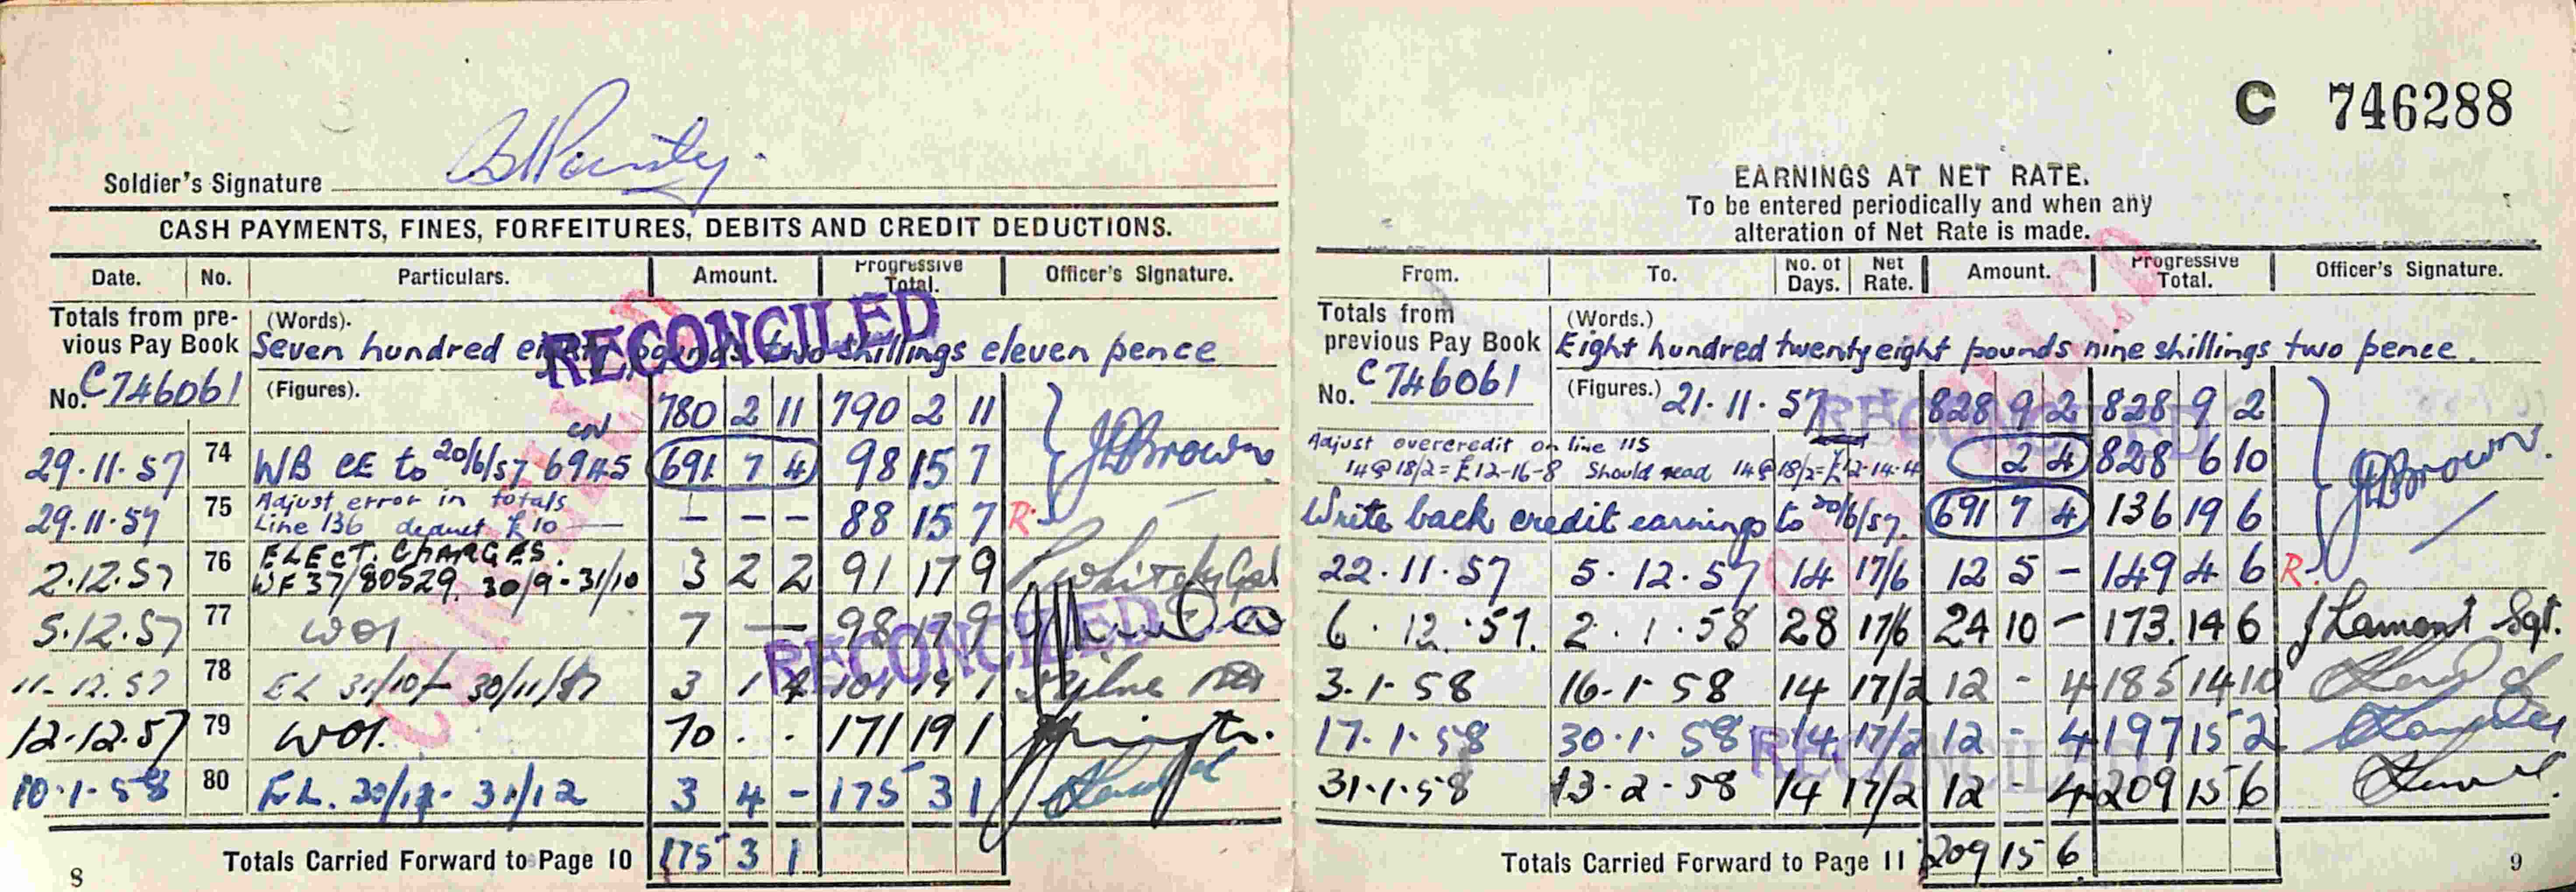 Soldier's Signature
CASH PAYMENTS, FINES, FORFEITURES, DEBITS AND CREDIT DEDUCTIONS.
Date. No. Particulars. Amount. Progressive Total. Officer's Signature.
Totals from previous Pay Book (Words).
Seven hundred eighty pounds two shillings eleven pence
RECONCILED
No. C746061 (Figures). 780 2 11 790 2 11
CN
29.11.57 74 WB CE to 20/6/57 6945 691 7 4 98 15 7 JLBrown
29.11.57 75 Adjust error in totals
Line 136 deduct £10 — - - - 88 15 7 R.
2.12.57 76 ELECT. CHARGES.
WF37/80529. 30/9-31/10 3 2 2 91 17 9
5.12.57 77 WO1 7 — 98 17 9
RECONCILED
11-12.57 78 EL 31/10/- 30/11/57 3 1 4 101 19 1
12.12.57 79 WO1. 70 . . 171 19 1
10.1.58 80 EL. 30/11- 31/12 3 4 - 175 3 1
Totals Carried Forward to Page 10 175 3 1
8
CANCELLED
C 746288
EARNINGS AT NET RATE.
To be entered periodically and when any
alteration of Net Rate is made.
From. To. No. of Days. Net Rate. Amount. Progressive Total. Officer's Signature.
Totals from previous Pay Book (Words.)
Eight hundred twenty eight pounds nine shillings two pence.
No. C746061 (Figures.) 21.11.57 828 9 2 828 9 2
RECONCILED
Adjust overcredit on line 115
14@18/2=£12-16-8 Should read 14@18/2=£12-14-4 2 4 828 6 10 JLBrown.
Write back credit earnings to 20/6/57. 691 7 4 136 19 6
22.11.57 5.12.57 14 17/6 12 5 - 149 4 6 R.
6.12.57. 2.1.58 28 17/6 24 10 - 173.14 6 JLamont Sgt.
3.1-58 16-1-58 14 17/2 12 - 4 185 14 10
17.1.58 30.1.58 14 17/2 12 - 4 197 15 2
RECONCILED
31.1.58 13-2-58 14 17/2 12 - 4 209 15 6
Totals Carried Forward to Page 11 209 15 6
9
CANCELLED